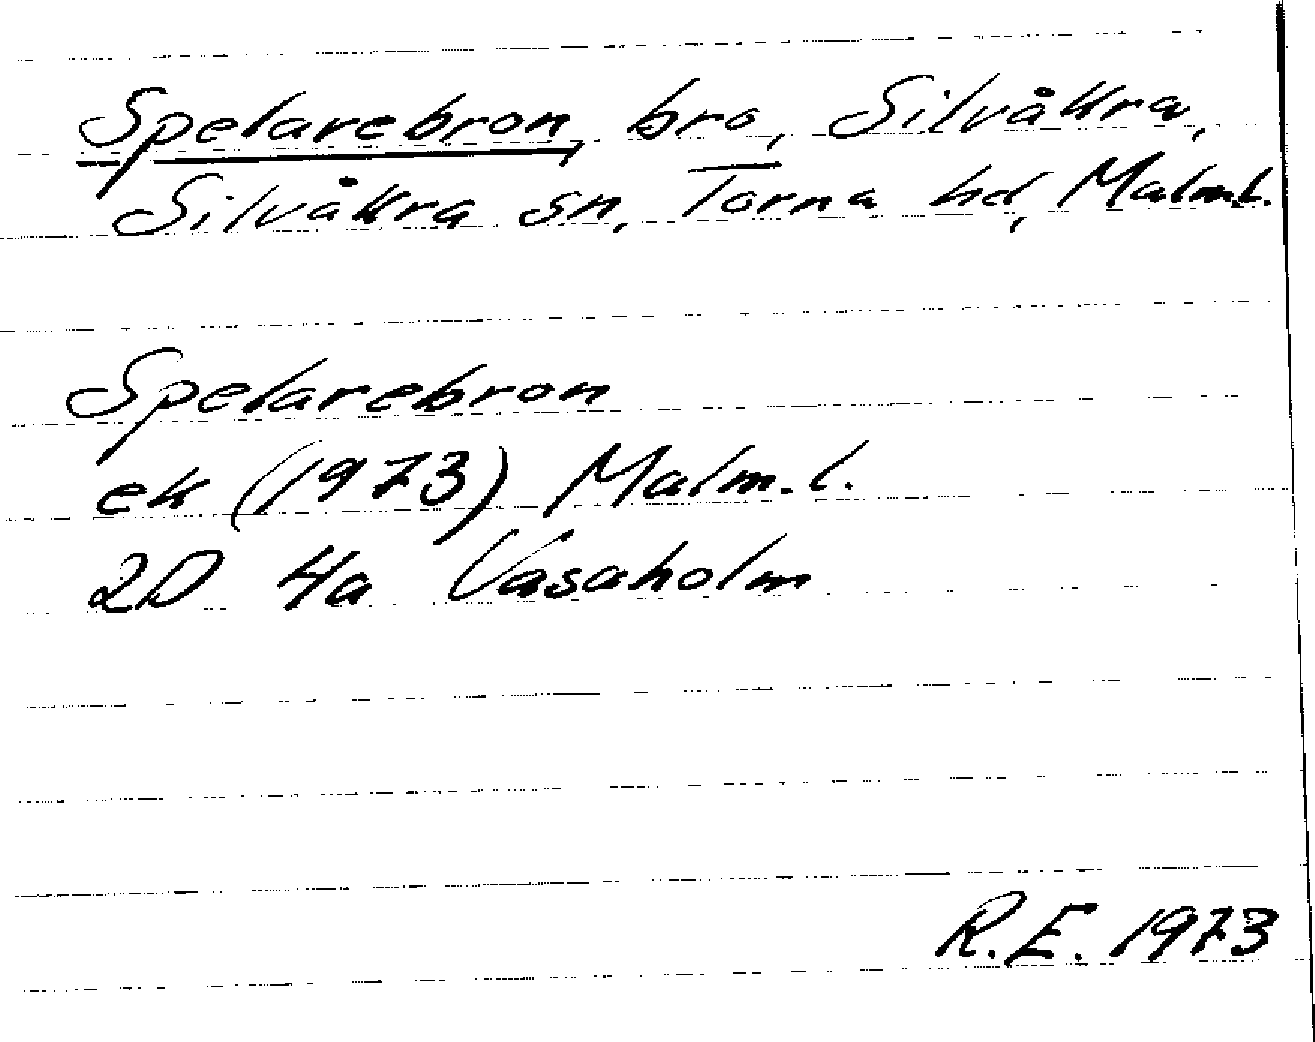 Spelarebron, bro, Silvåkra,
Silvåkra sn, Torna hd, Malm.l.
Spelarebron
ek (1973) Malm.l.
2D 4a Vasaholm
R.E. 1973